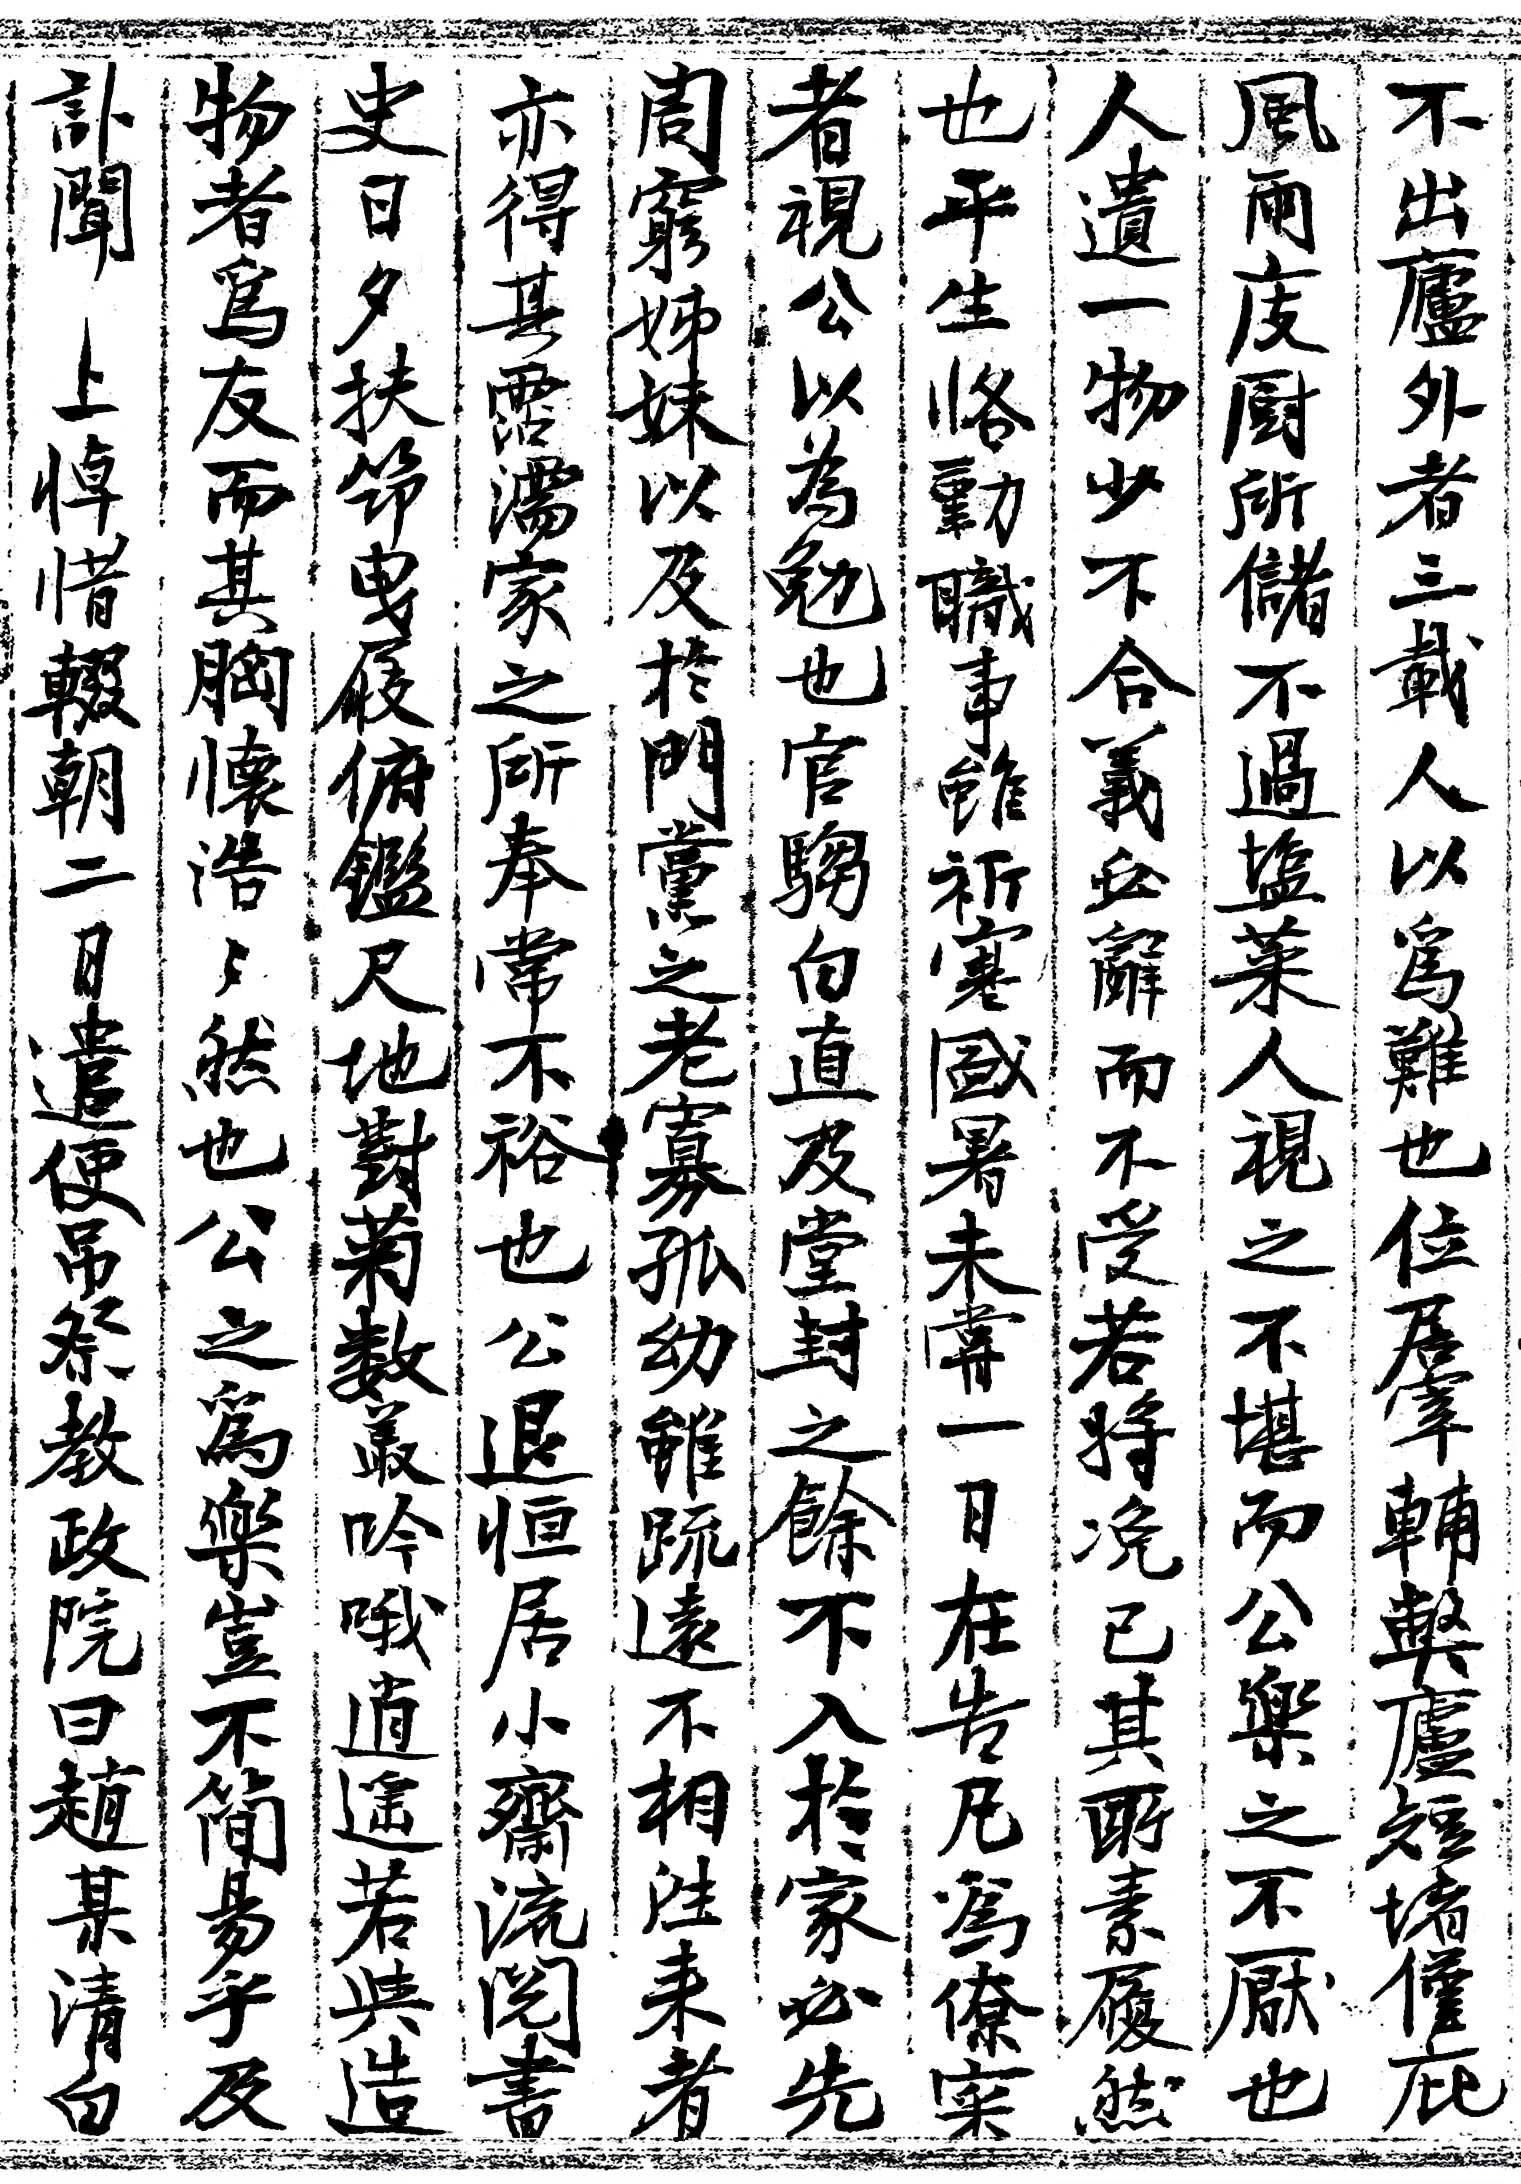 不出廬外者三載人以爲難也位居宰輔弊廬短堵僅庇
風雨庋厨所儲不過塩菜人視之不堪而公樂之不厭也
人遺一物少不合義必辭而不受若將浼已其雅素履然
也平生恪勤職事雖祈寒盛暑未嘗一日在告凡爲僚寀
者視公以為勉也官騶白直及堂封之餘不入於家必先
周窮姊妹以及於門黨之老寡孤幼雖疏遠不相往来者
亦得其霑濡家之所奉常不裕也公退恒居小齋流閱書
史日夕扶笻曳屐俯鑑尺地對菊数叢吟哦逍遥若與造
物者爲友而其胸懐浩〻然也公之爲樂豈不簡易乎及
訃聞 上悼惜輟朝二日遣使吊祭教政院曰趙某清白